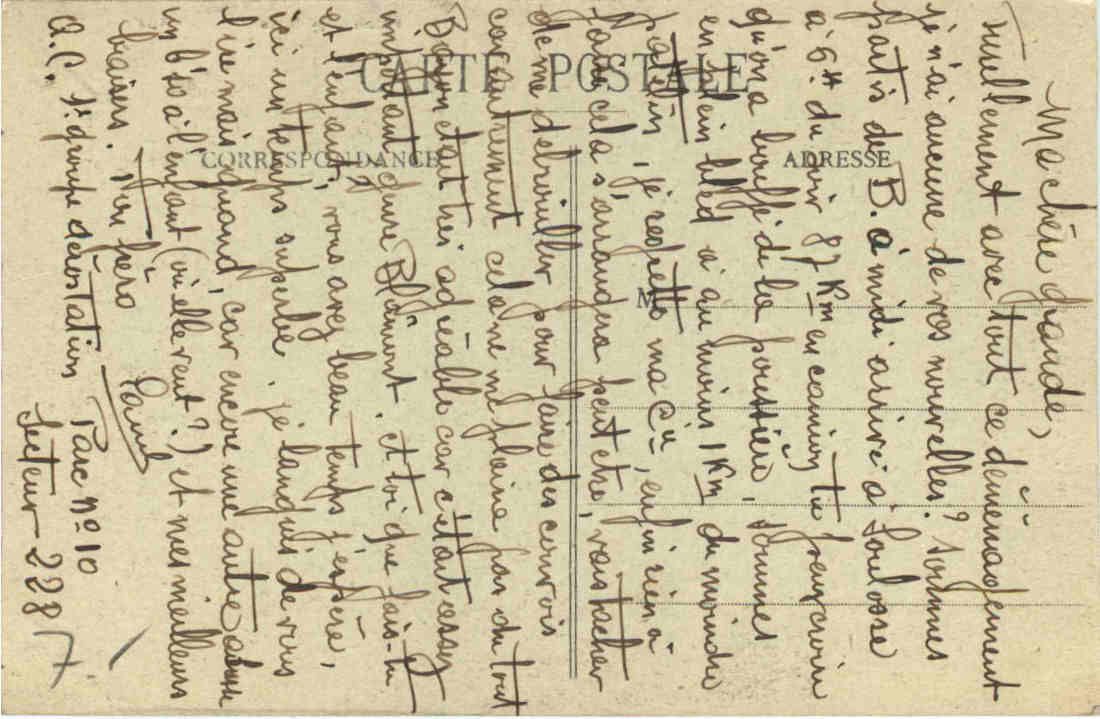 CARTE POSTALE
CORRESPONDANCE
ADRESSE
M
Ma chère grande,
nullement avec tout ce déménagement
je n'ai aucune de vos nouvelles? Sommes
partis de B. à midi arrivé à Toul
à 6H du soir 87 Km en camion, tu peux croire
qu'on a bouffé de la poussière. Sommes
en plein bled à au moins 1 Km du moindre
patelin, je regrette ma Cie, enfin rien à
faire cela s'arrangera peut etre, vais tacher
de me debrouiller pour faire des convois
car autrement cela ne me plaire pas du tout
Bayon etait très agréable car c'etait assez
important qune Blamont. et toi que fais-tu
et l'enfant, vous avez beau temps j'espère,
ici un temps superbe. je languis de vous
lire mais quand, car encore une autre adresse
un b'so à l'enfant (si elle veut?) et mes meilleurs
baisers. ton frèro
Paul
Q.C. 1er groupe aérostation Parc no 10
Secteur 228
7